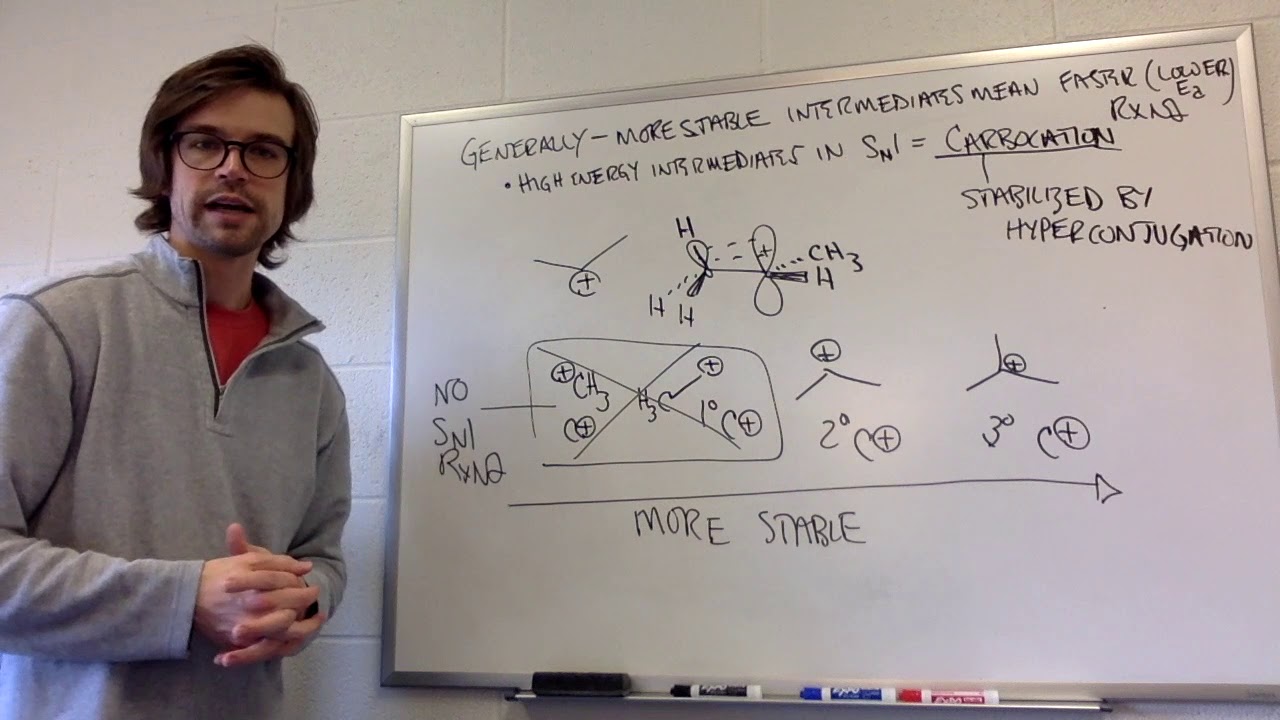 GENERALLY – MORE STABLE INTERMEDIATES MEAN FASTER (LOWER Ea) RXN
• HIGH ENERGY INTERMEDIATES IN SN1 = CARBOCATION
STABILIZED BY
HYPERCONJUGATION
H
CH3
H
H
H
+
+
NO
SN1
RXN
+CH3
H3C +
+
+
C+
1° C+
2° C+
3° C+
MORE STABLE
EXPO
EXPO